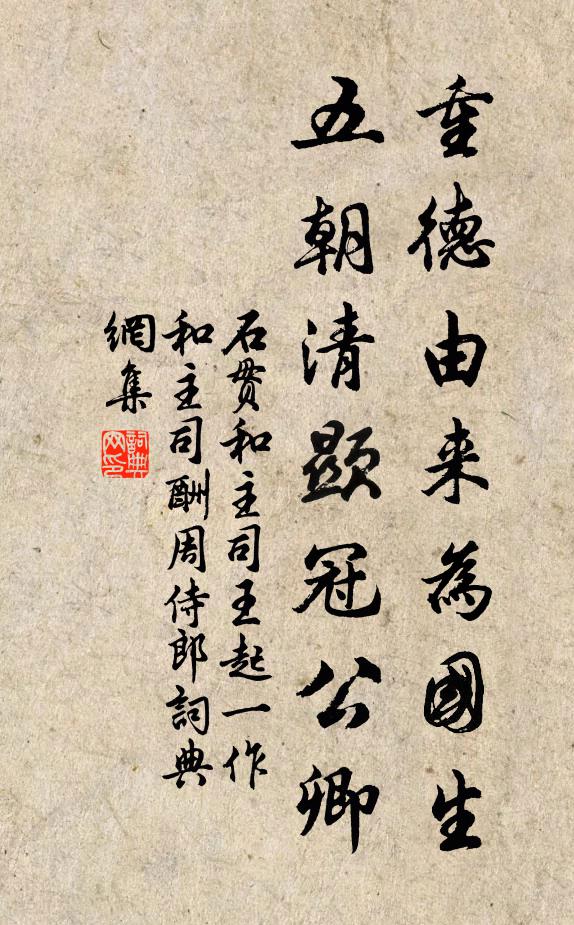 重德由来為國生
五朝清顯冠公卿
石贯和主司王起一作
和主司酬周侍郎詞典
網集
詞典网印